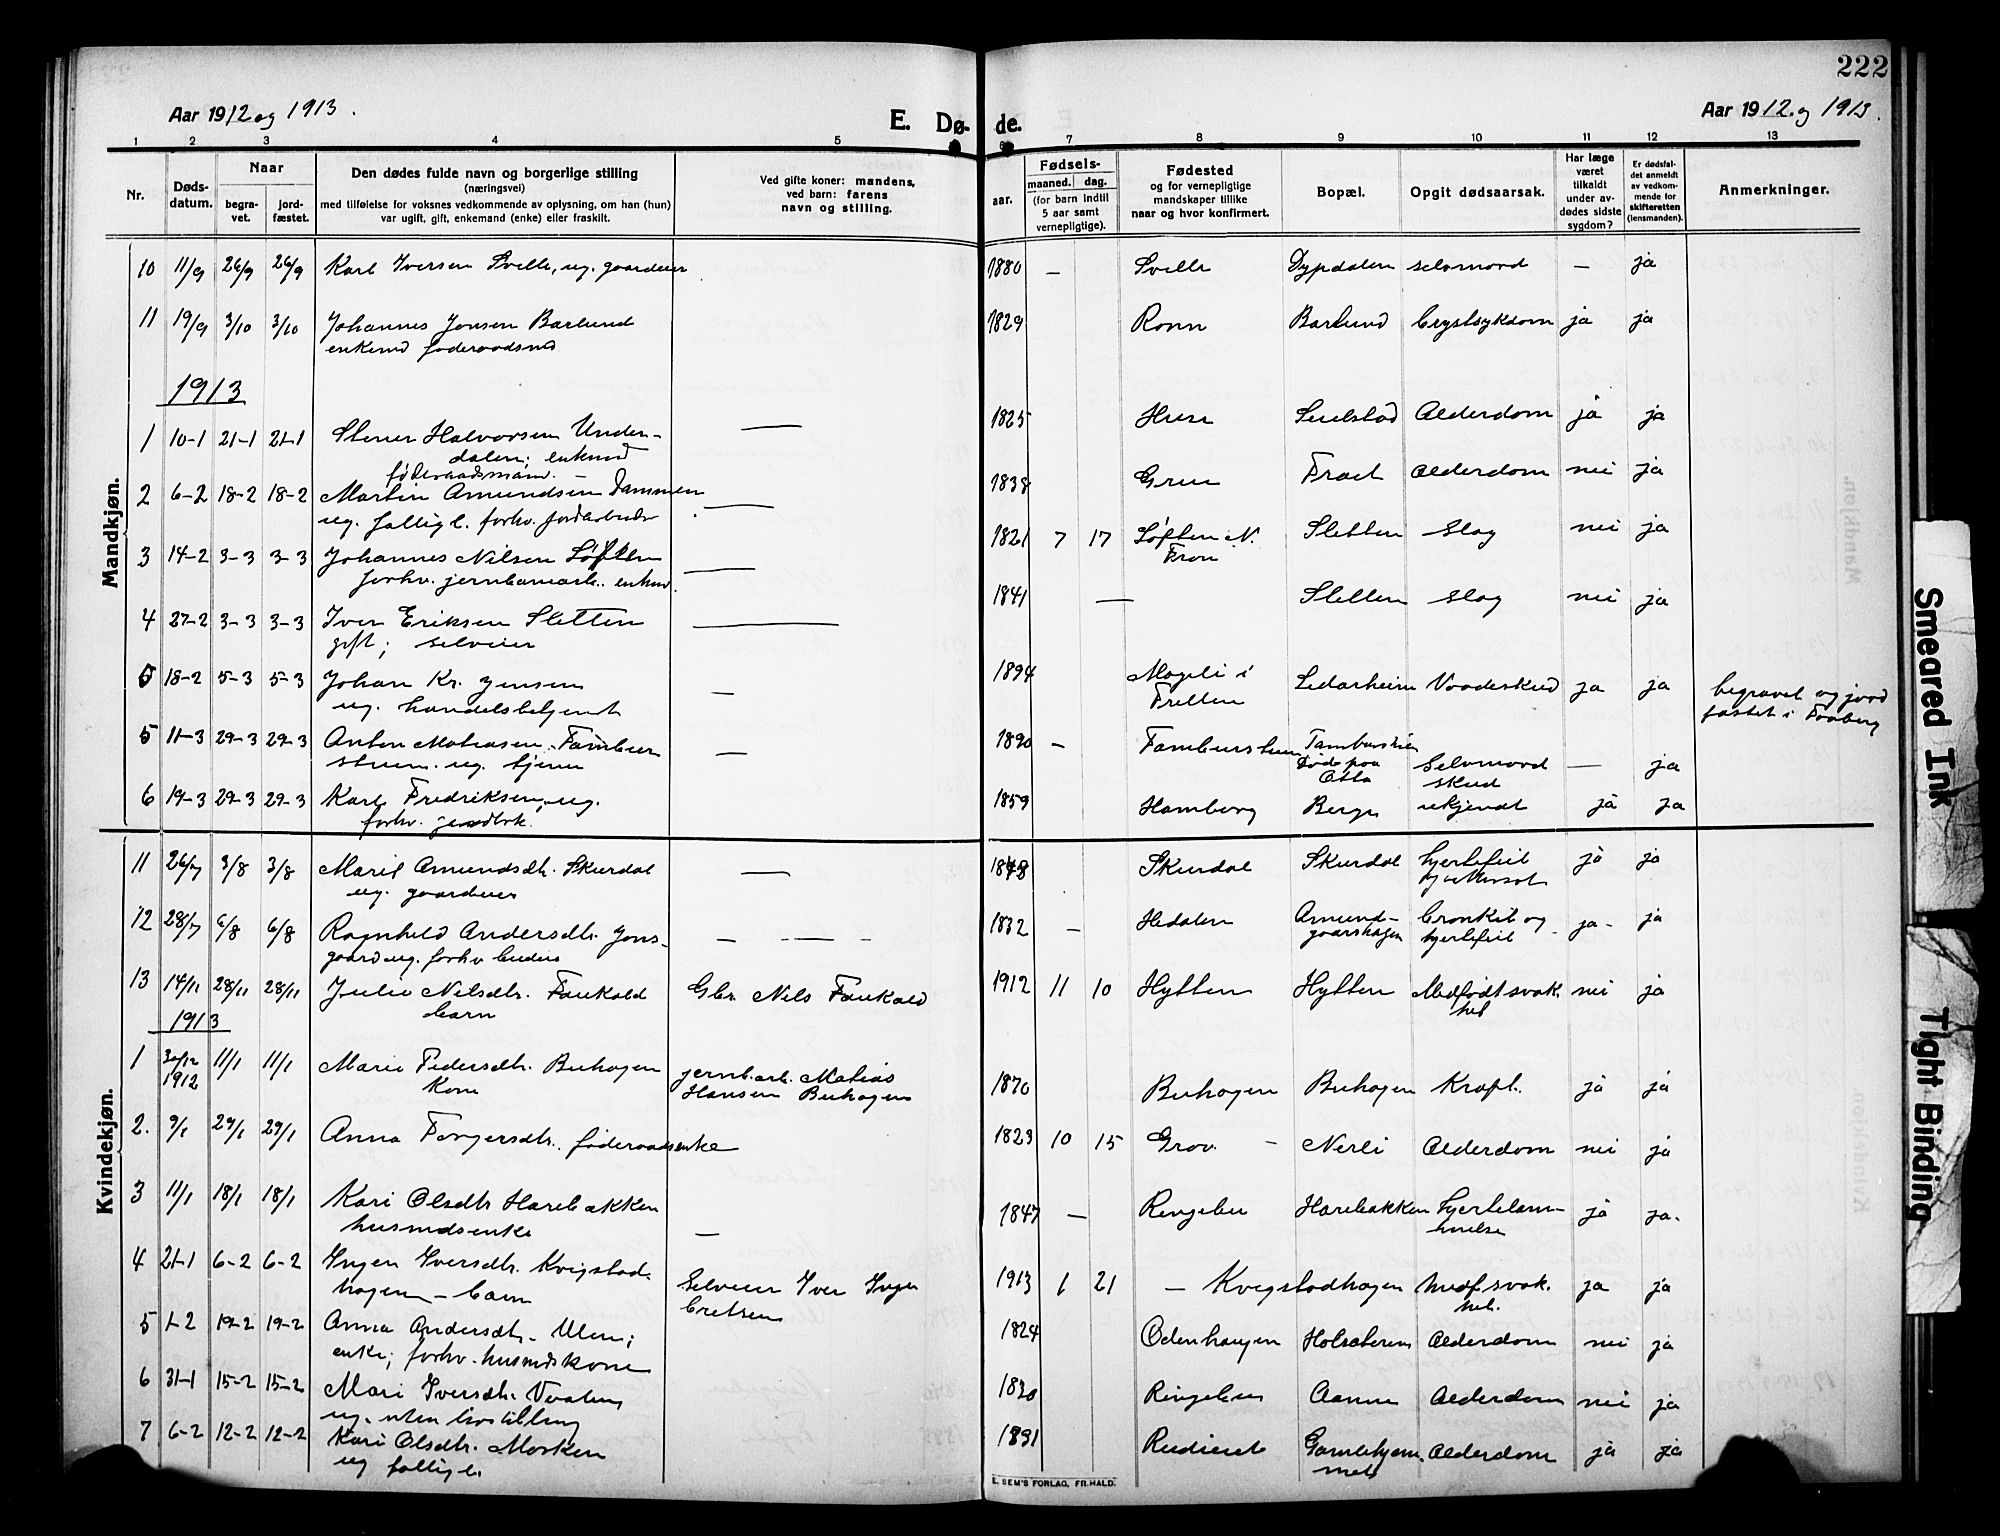 222
Aar 1912 og 1913.
E. Dø-
de.
Aar 1912 og 1913.
1 2 3 4 5 6 7 8 9 10 11 12 13
Nr.
Døds-
datum.
Naar
begra-
vet.
jord-
fæstet.
Den dødes fulde navn og borgerlige stilling
(næringsvei)
med tilføielse for voksnes vedkommende av oplysning, om han (hun)
var ugift, gift, enkemand (enke) eller fraskilt.
Ved gifte koner: mandens,
ved barn: farens
navn og stilling.
Fødsels-
aar.
maaned. dag.
(for barn indtil
5 aar samt
vernepligtige).
Fødested
og for vernepligtige
mandskaper tillike
naar og hvor konfirmert.
Bopæl.
Opgit dødsaarsak.
Har læge
været
tilkaldt
under av-
dødes sidste
sygdom?
Er dødsfal-
det anmeldt
av vedkom-
mende for
skifteretten
(lensmanden).
Anmerkninger.
Mandkjøn.
10 11/9 26/9 26/9 Karl Iversen Sville, ug. gaardeier 1880 — Sville Dypdalen selvmord — ja
11 19/9 3/10 3/10 Johannes Jonsen Barlund 1829 Ronn Barlund Brystsykdom ja ja
enkemd føderaadsmd
1913
1 10-1 21-1 21-1 Stener Halvorsen Under- — 1825 Alderdom ja ja
dalen; enkemd
føderaadsmann. —
2 6-2 18-2 18-2 Martin Amundsen Dammen — 1838 Alderdom nei ja
ug. fattigl. forhv. jordarbeider
3 14-2 3-3 3-3 Johannes Nilsen Løften — 1821 7 17 Løften N. Sletten Slag nei ja
Fron
forhv. jernbanearb. enkmd.
4 27-2 3-3 3-3 Iver Eriksen Sletten — 1841 — Sletten Slag nei ja
gift; selveier
5 18-2 5-3 5-3 Johan Kr. Jensen — 1894 Mageli i Vaadeskud ja ja begravet og jord
Tretten fæstet i Faaberg
ug. handelsbetjent
5 11-3 29-3 29-3 Anton Matiasen — 1890 —
ug. tjener Døde paa Selvmord — ja
Otta skud
6 19-3 29-3 29-3 Karl Fredriksen, ug. 1859 Hamberg Berge ukjendt ja ja
forhv.
Kvindekjøn.
11 26/7 3/8 3/8 Marit Amundsdtr. Skurdal — 1848 Skurdal Skurdal hjertefeil ja ja
ug. gaardeier
12 28/7 6/8 6/8 Ragnhild Andersdtr. Jons- — — — 1832 — Hedalen Amund- Bronkit og ja. ja
gaard ug. forhv. budeie gaardshagen hjertefeil
13 14/11 28/11 28/11 Julie Nilsdtr. Faukald Gbr. Nils Faukald 1912 11 10 Hytten Hytten Medfødt svak- nei ja
barn het
1913
1 30/12 11/1 11/1 Marie Pedersdtr. Buhagen jernb.arb. Matias 1870 Buhagen Buhagen Kræft. ja ja
1912 Kone Hansen Buhagen
2. 9/1 29/1 29/1 Anna Torgersdtr. føderaadsenke 1823 10 15 Grov. — Nerli Alderdom nei ja
3 11/1 18/1 18/1 Kari Olsdtr. Harebakken 1847 — Ringebu Harebakken hjertelam- ja ja.
husmdsenke — melse
4 21-1 6-2 6-2 Ingen Iversdtr. Kvigstad- Selveier Iver Inge- 1913 1 21 — Kvigstadhagen medf. svak- ja ja
hagen — barn bretsen het.
5 1-2 19-2 19-2 Anna Andersdtr. Ulen; 1824 Odenhaugen Alderdom nei ja
enke; forhv. husmdskone
6 31-1 15-2 15-2 Mari Iversdtr. 1830 Ringebu Alderdom nei ja
ug. uten livsstilling
7 6-2 12-2 12-2 Kari Olsdtr. Morken 1831 Alderdom ja ja
ug fattigl.
E. SEM'S FORLAG, FR.HALD.
Smeared Ink
Tight Binding